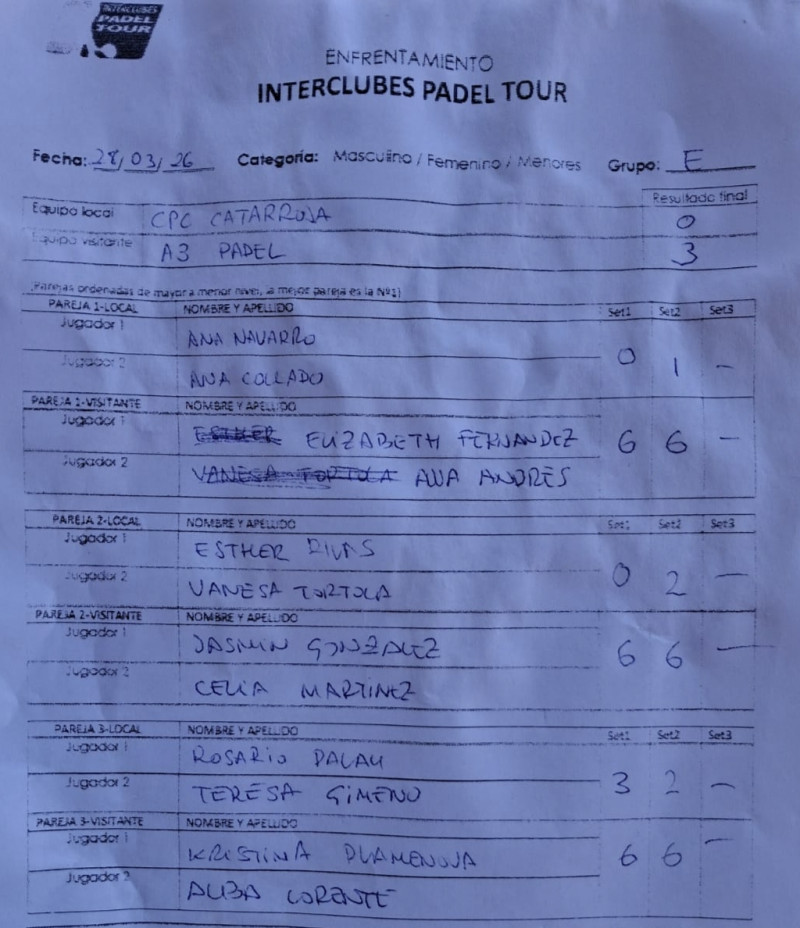 INTERCLUBES
PADEL
TOUR
ENFRENTAMIENTO
INTERCLUBES PADEL TOUR
Fecha: 28/03/26 Categoría: Masculino / Femenino / Menores Grupo: E
Resultado final
Equipo local CPC CATARROJA 0
Equipo visitante A3 PADEL 3
(Parejas ordenadas de mayor a menor nivel, la mejor pareja es la Nº1)
PAREJA 1-LOCAL NOMBRE Y APELLIDO Set1 Set2 Set3
Jugador 1 ANA NAVARRO
0 1 –
Jugador 2 ANA COLLADO
PAREJA 1-VISITANTE NOMBRE Y APELLIDO
Jugador 1 ESTHER ELIZABETH FERNANDEZ
6 6 –
Jugador 2 VANESA TORTOLA ANA ANDRES
PAREJA 2-LOCAL NOMBRE Y APELLIDO Set1 Set2 Set3
Jugador 1 ESTHER RIVAS
0 2 –
Jugador 2 VANESA TORTOLA
PAREJA 2-VISITANTE NOMBRE Y APELLIDO
Jugador 1 JASMIN GONZALEZ
6 6 –
Jugador 2 CELIA MARTINEZ
PAREJA 3-LOCAL NOMBRE Y APELLIDO Set1 Set2 Set3
Jugador 1 ROSARIO DALAU
3 2 –
Jugador 2 TERESA GIMENO
PAREJA 3-VISITANTE NOMBRE Y APELLIDO
Jugador 1 KRISTINA PLAMENOVA
6 6 –
Jugador 2 ALBA LORENTE